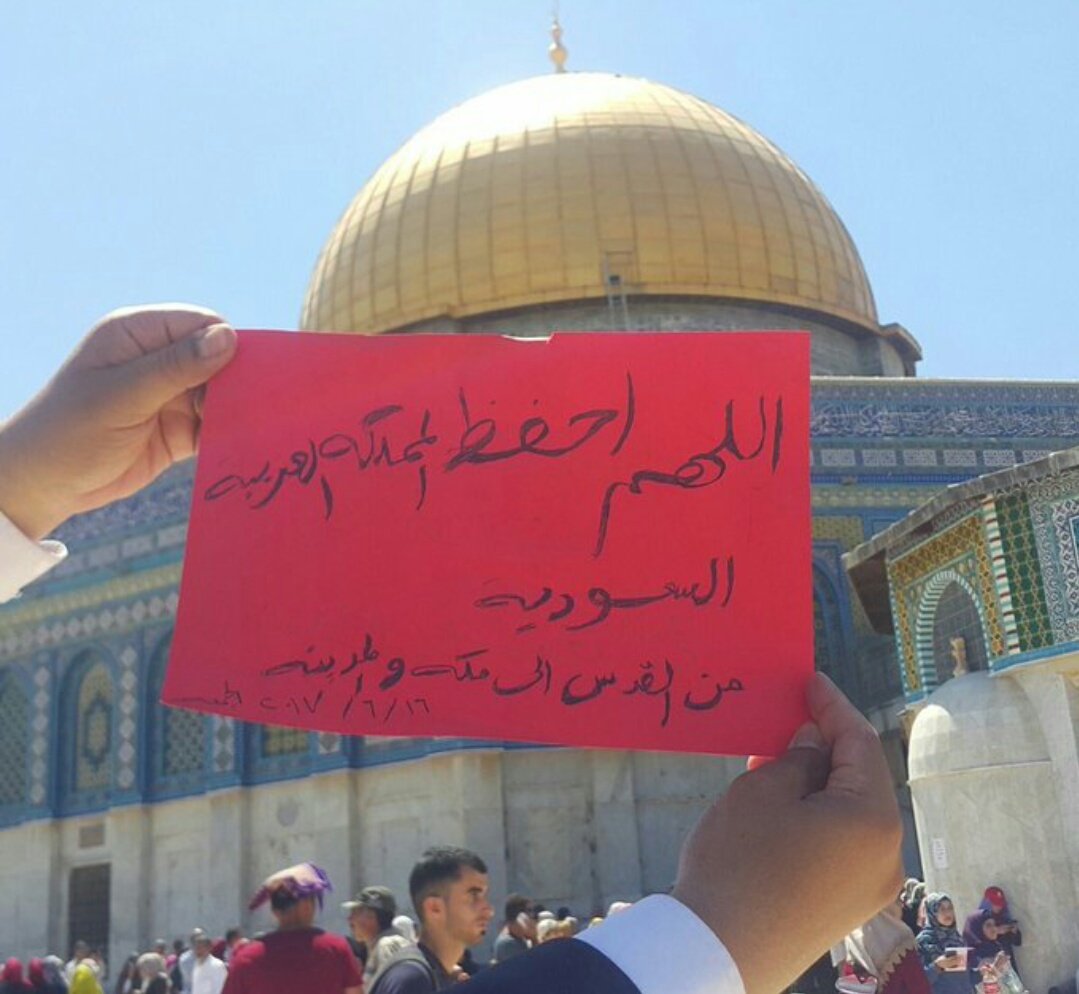 اللهم احفظ المملكة العربية
السعودية
من القدس الى مكه والمدينه
١٦/٦/٢٠١٧ الجمعه